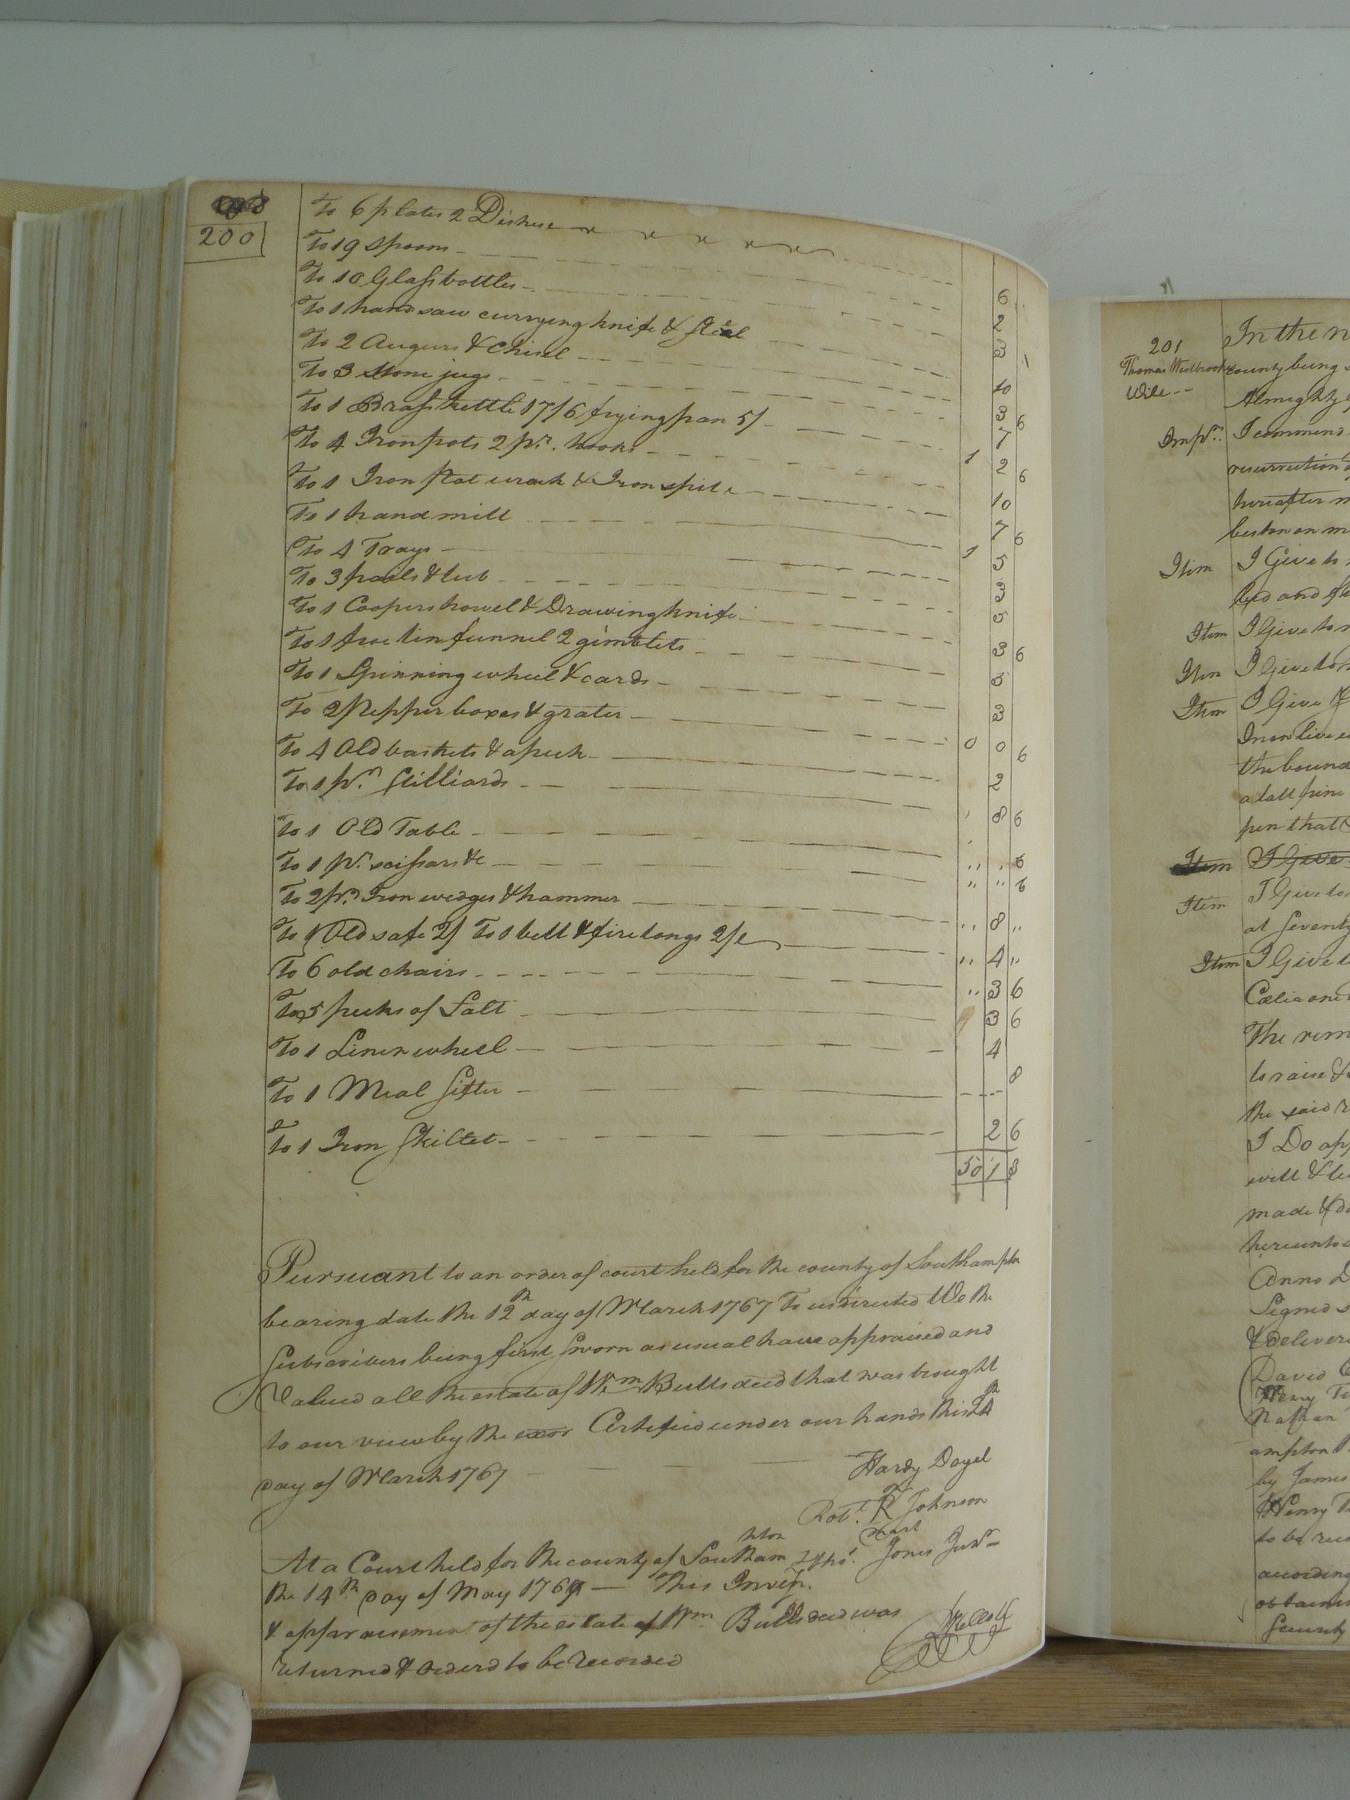 200
To 6 plates 2 Dishes
To 19 Spoons 6
To 10 Glass bottles 2
To 1 hand saw currying knife & Steal 3
To 2 Augurs & Chisel 10
To 3 Stone jugs 3 6
To 1 Brass kettle 17/6 frying pan 5/ 7
To 4 Iron pots 2 pr. hooks 1 2 6
To 1 Iron pot & Iron spit 10
To 1 hand mill 7 6
To 4 Trays 1 5
To 3 pails & tub 3
To 1 Coopers howel & Drawing knife 5
To 1 froe tin funnel 2 gimblets 3 6
To 1 Spinning wheel & cards 5
To 2 Pepper boxes & grater 3
To 4 Old baskets & a peck 0 0 6
To 1 pr. Stilliards 2
To 1 Old Table 8 6
To 1 pr. scissars &c 6
To 2 pr. Iron wedges & hammer 6
To 1 Old safe 2/ To 1 bell & fire tongs 2/6 8
To 6 old chairs 4
To 5 pecks of Salt 3 6
To 1 Linen wheel 3 6
To 1 Meal Sifter 4
8
To 1 Iron Skillet 2 6
50 1 8
Pursuant to an order of court held for the county of Southampton
bearing date the 12th day of March 1767 To us directed We the
Subscribers being first Sworn as usual have appraised and
Valued all the estate of Wm Bulls decd that was brought
to our view by the exor Certified under our hands this 24th
Day of March 1767
Hardy Doyel
Robt. R Johnson
mark
Thos. Jones Junr
At a Court held for the county of Southampton
the 14th Day of May 1767 — This Inven.
& apparaisement of the estate of Wm Bulls decd was
returned & Orderd to be recorded
201
Thomas Westbrooks
Will
In the n
county being
Almighty
Impr. I commend
resurrection
hereafter
beston on m
Item I Give to
bed and
Item I Give to
Item I Give to
Item I Give
the bound
a tall pine
pen that
Item I Give
Item I Give to
at Seventy
Item I Give
Celia one
The rem
to raise &
the said
I Do ap
will & te
made &
hereunto
Anno D
Signed s
& Deliver
David
Henry
Nathan
ampton
by James
Henry
to be rec
according
obtain
Security